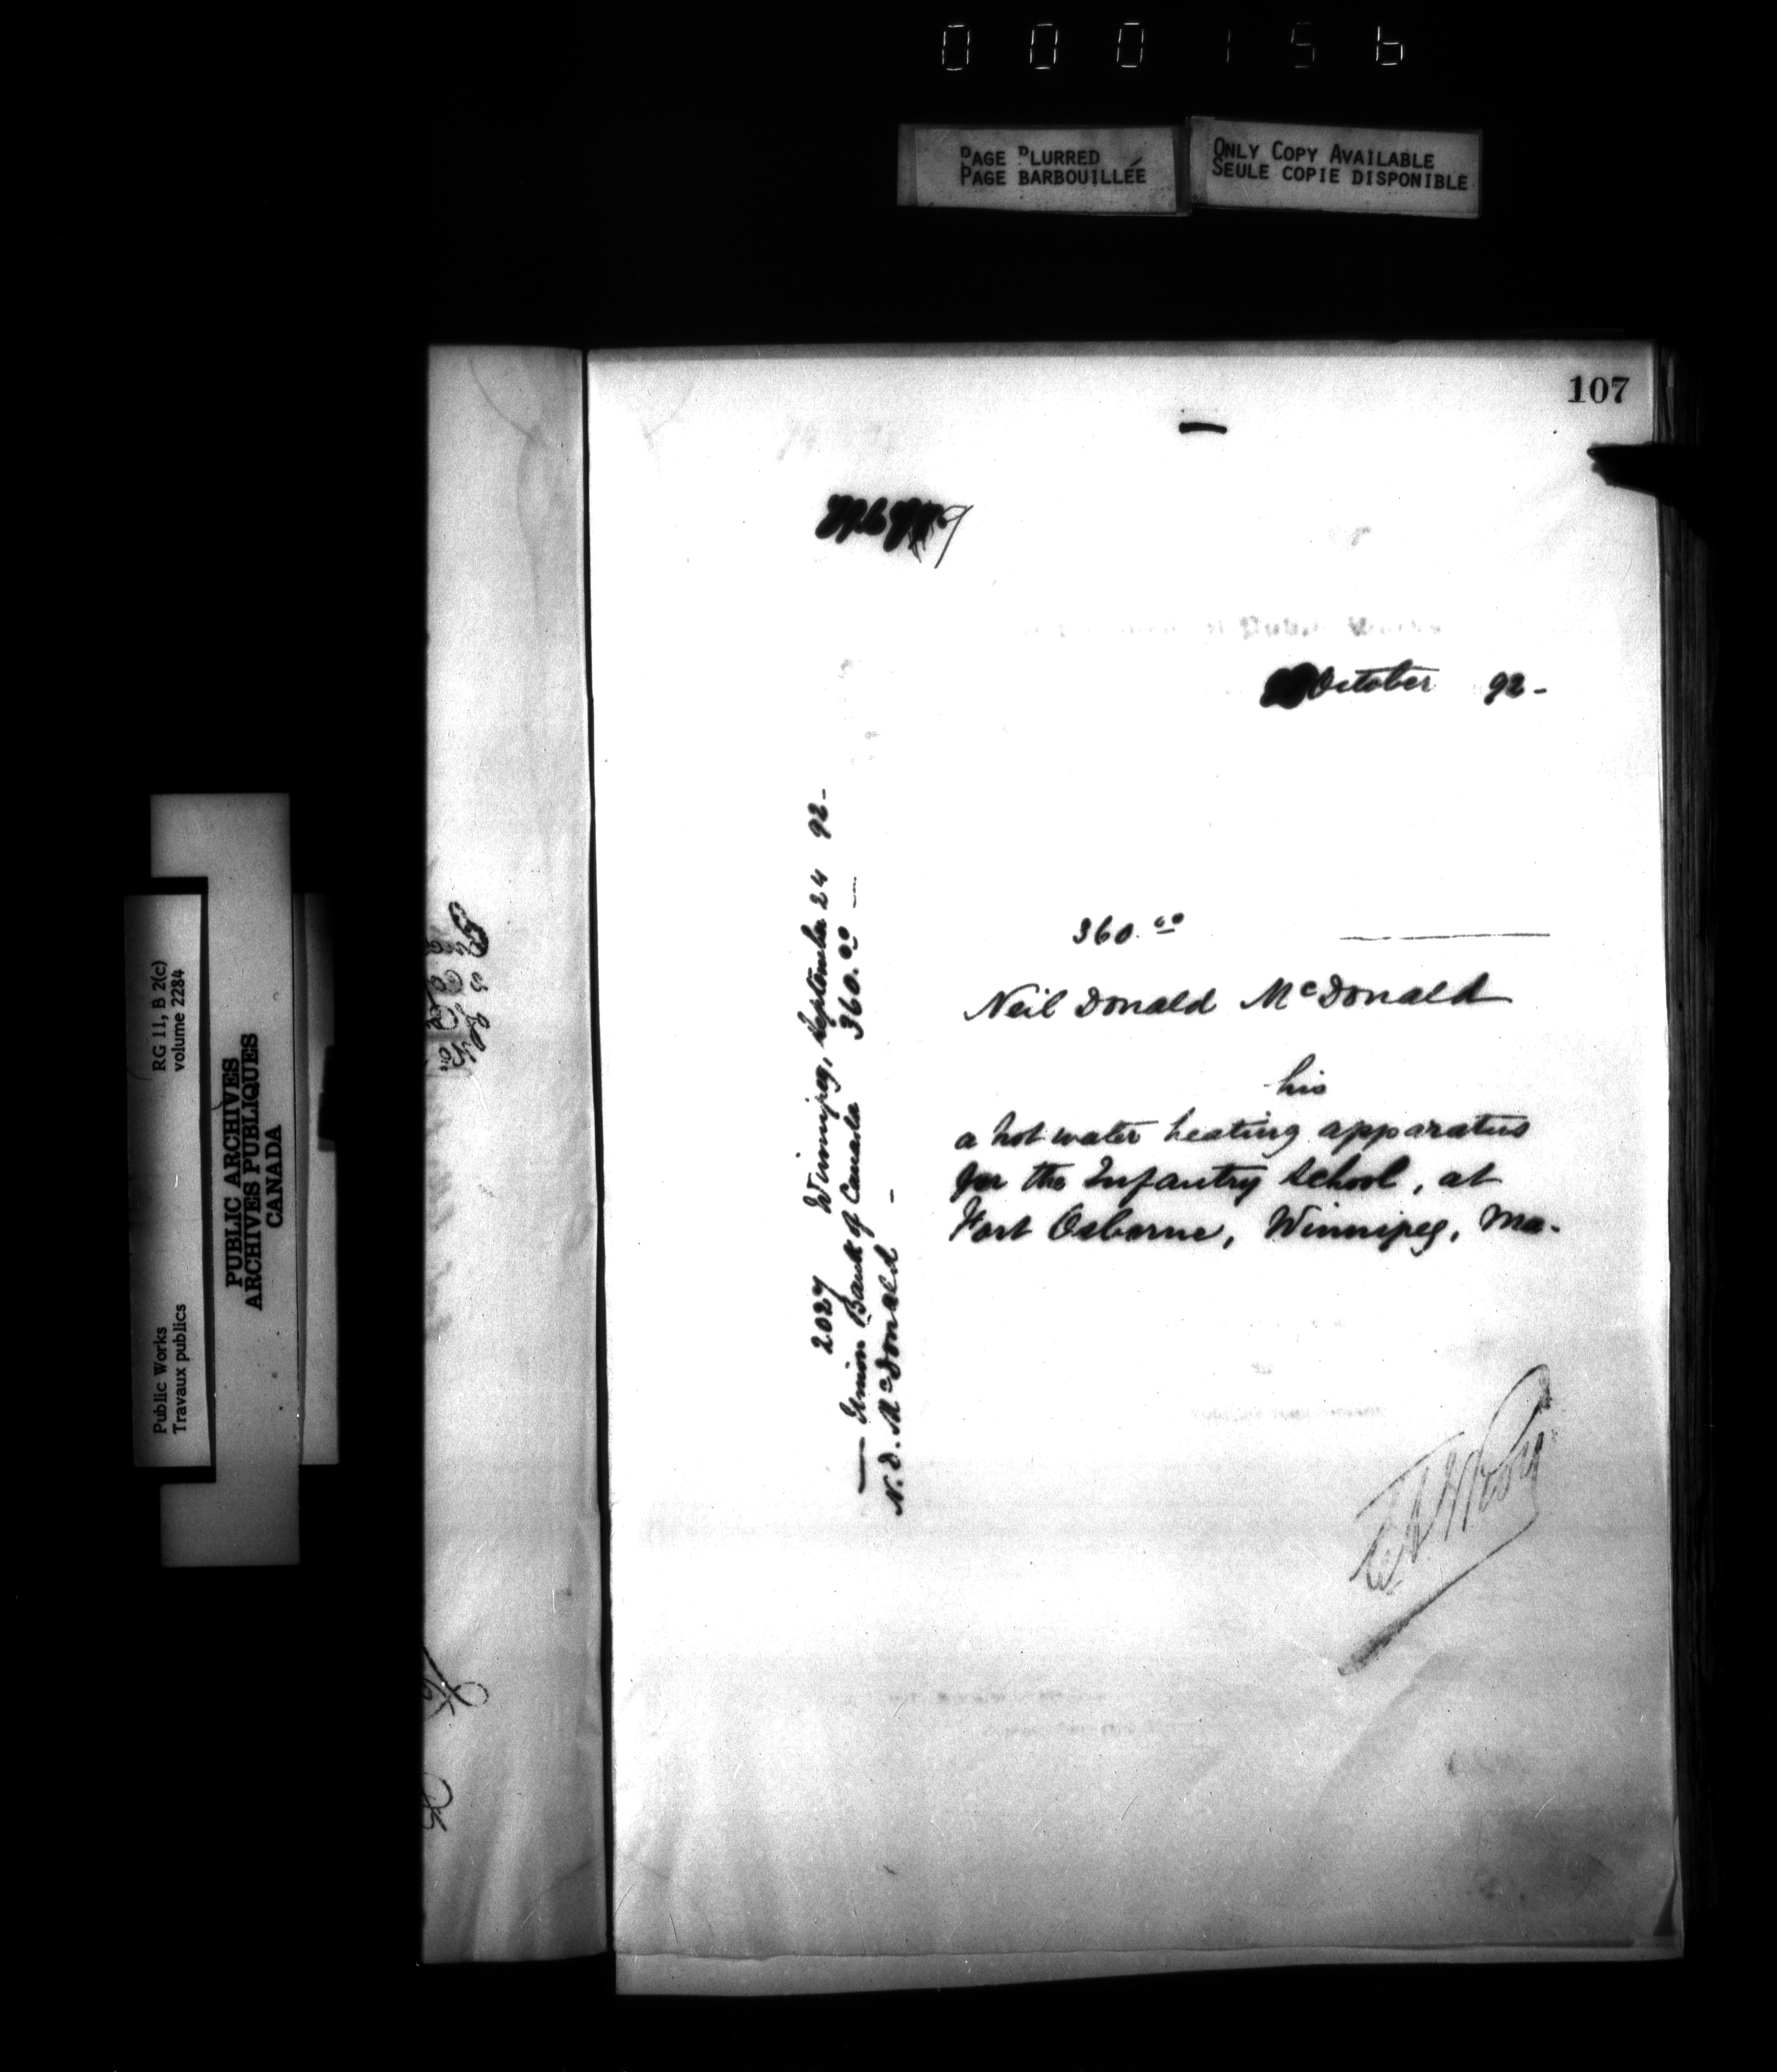 000156
PAGE BLURRED
PAGE BARBOUILLÉE
ONLY COPY AVAILABLE
SEULE COPIE DISPONIBLE
107
October 92-
360.00
Neil Donald McDonald
his
a hot water heating apparatus
for the Infantry School, at
Fort Osborne, Winnipeg, Ma.
2027 Winnipeg, September 24 92-
Union Bank of Canada 360.00
N. D. McDonald
Public Works
Travaux publics
RG 11, B 2(c)
volume 2284
PUBLIC ARCHIVES
ARCHIVES PUBLIQUES
CANADA